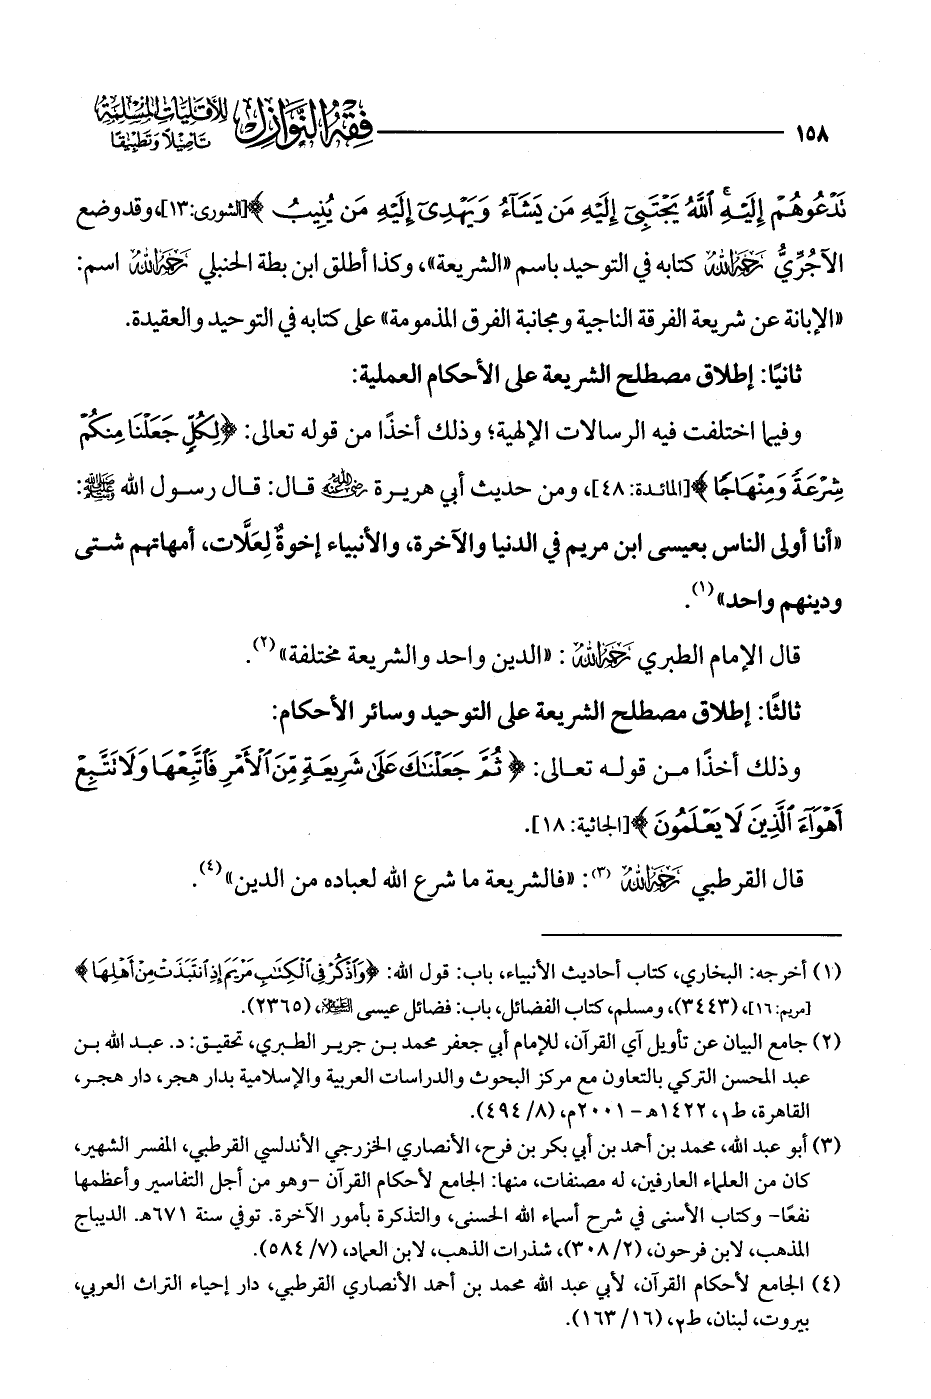 ١٥٨
فقه النوازل للأقليات المسلمة
تأصيلاً وتطبيقًا
نَدْعُوهُمْ إِلَيْهِ ۚ ٱللَّهُ يَجْتَبِىٓ إِلَيْهِ مَن يَشَآءُ وَيَهْدِىٓ إِلَيْهِ مَن يُنِيبُ ﴾ [الشورى: ١٣]، وقد وضع
الآجُرِّيُّ رَحِمَهُ اللهُ كتابه في التوحيد باسم «الشريعة»، وكذا أطلق ابن بطة الحنبلي رَحِمَهُ اللهُ اسم:
«الإبانة عن شريعة الفرقة الناجية ومجانبة الفرق المذمومة» على كتابه في التوحيد والعقيدة.
ثانيًا: إطلاق مصطلح الشريعة على الأحكام العملية:
وفيما اختلفت فيه الرسالات الإلهية؛ وذلك أخذًا من قوله تعالى: ﴿لِكُلٍّ جَعَلْنَا مِنكُمْ
شِرْعَةً وَمِنْهَاجًا ﴾ [المائدة: ٤٨]، ومن حديث أبي هريرة رضي الله عنه قال: قال رسول الله ﷺ:
«أنا أولى الناس بعيسى ابن مريم في الدنيا والآخرة، والأنبياء إخوةٌ لِعَلَّات، أمهاتهم شتى
ودينهم واحد»(١).
قال الإمام الطبري رَحِمَهُ اللهُ : «الدين واحد والشريعة مختلفة»(٢).
ثالثًا: إطلاق مصطلح الشريعة على التوحيد وسائر الأحكام:
وذلك أخذًا من قوله تعالى: ﴿ ثُمَّ جَعَلْنَٰكَ عَلَىٰ شَرِيعَةٍ مِّنَ ٱلْأَمْرِ فَٱتَّبِعْهَا وَلَا تَتَّبِعْ
أَهْوَآءَ ٱلَّذِينَ لَا يَعْلَمُونَ ﴾ [الجاثية: ١٨].
قال القرطبي رَحِمَهُ اللهُ (٣): «فالشريعة ما شرع الله لعباده من الدين»(٤).
(١) أخرجه: البخاري، كتاب أحاديث الأنبياء، باب: قول الله: ﴿وَٱذْكُرْ فِى ٱلْكِتَٰبِ مَرْيَمَ إِذِ ٱنتَبَذَتْ مِنْ أَهْلِهَا ﴾
[مريم: ١٦]، (٣٤٤٣)، ومسلم، كتاب الفضائل، باب: فضائل عيسى عليه السلام، (٢٣٦٥).
(٢) جامع البيان عن تأويل آي القرآن، للإمام أبي جعفر محمد بن جرير الطبري، تحقيق: د. عبد الله بن
عبد المحسن التركي بالتعاون مع مركز البحوث والدراسات العربية والإسلامية بدار هجر، دار هجر،
القاهرة، ط١، ١٤٢٢هـ - ٢٠٠١م، (٨/ ٤٩٤).
(٣) أبو عبد الله، محمد بن أحمد بن أبي بكر بن فرح، الأنصاري الخزرجي الأندلسي القرطبي، المفسر الشهير،
كان من العلماء العارفين، له مصنفات، منها: الجامع لأحكام القرآن -وهو من أجل التفاسير وأعظمها
نفعًا- وكتاب الأسنى في شرح أسماء الله الحسنى، والتذكرة بأمور الآخرة. توفي سنة ٦٧١هـ. الديباج
المذهب، لابن فرحون، (٢/ ٣٠٨)، شذرات الذهب، لابن العماد، (٧/ ٥٨٤).
(٤) الجامع لأحكام القرآن، لأبي عبد الله محمد بن أحمد الأنصاري القرطبي، دار إحياء التراث العربي،
بيروت، لبنان، ط٢، (١٦/ ١٦٣).